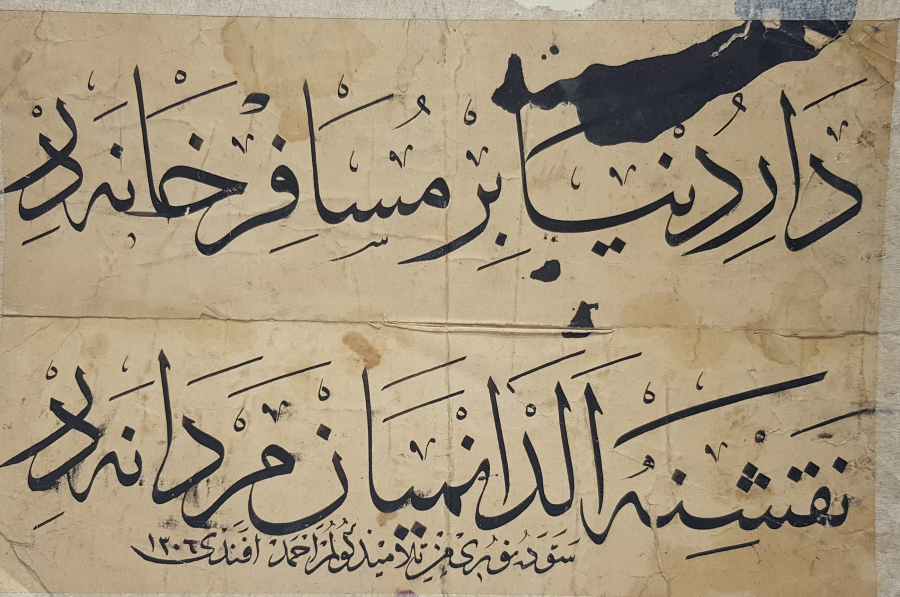 دَارِ دُنْيَا بِرْ مُسَافِرْ خَانَه دِرْ
نَقْشِنَه اَلْدَانْمَيَانْ مَرْدَانَه دِرْ
سَوَّدَ نوری مِنْ تلامیذ احمد افندی ١٣٠٦